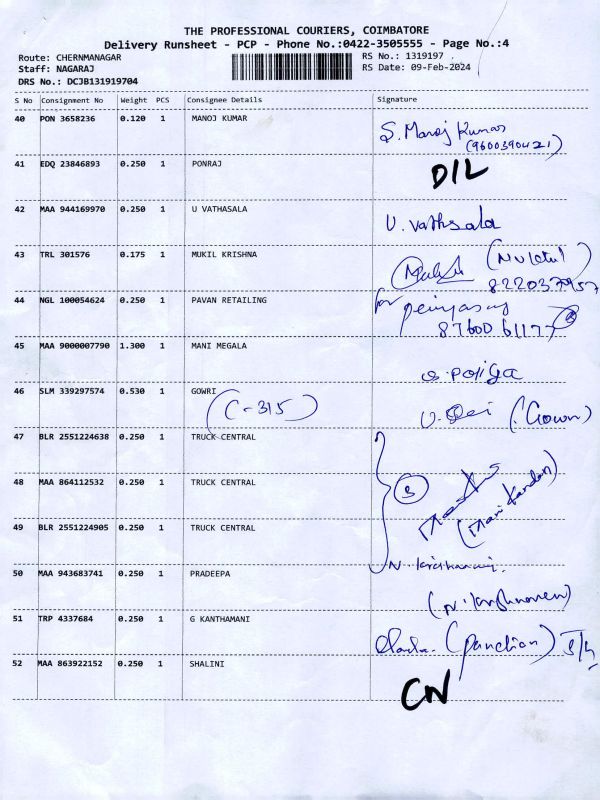 THE PROFESSIONAL COURIERS, COIMBATORE
Delivery Runsheet - PCP - Phone No.:0422-3505555 - Page No.:4
Route: CHERNMANAGAR RS No.: 1319197
Staff: NAGARAJ RS Date: 09-Feb-2024
DRS No.: DCJB131919704
S No Consignment No Weight PCS Consignee Details Signature
40 PON 3658236 0.120 1 MANOJ KUMAR S. Manoj Kumar
(9600390421)
41 EDQ 23846893 0.250 1 PONRAJ D/L
42 MAA 944169970 0.250 1 U VATHSALA U. Vathsala
43 TRL 301576 0.175 1 MUKIL KRISHNA
822037957
44 NGL 100054624 0.250 1 PAVAN RETAILING for
8760061177
45 MAA 9000007790 1.300 1 MANI MEGALA
46 SLM 339297574 0.530 1 GOWRI
(C-315)
47 BLR 2551224638 0.250 1 TRUCK CENTRAL
48 MAA 864112532 0.250 1 TRUCK CENTRAL 3
(Mani Kandan)
49 BLR 2551224905 0.250 1 TRUCK CENTRAL
50 MAA 943683741 0.250 1 PRADEEPA
51 TRP 4337684 0.250 1 G KANTHAMANI (pandian)
52 MAA 863922152 0.250 1 SHALINI CN